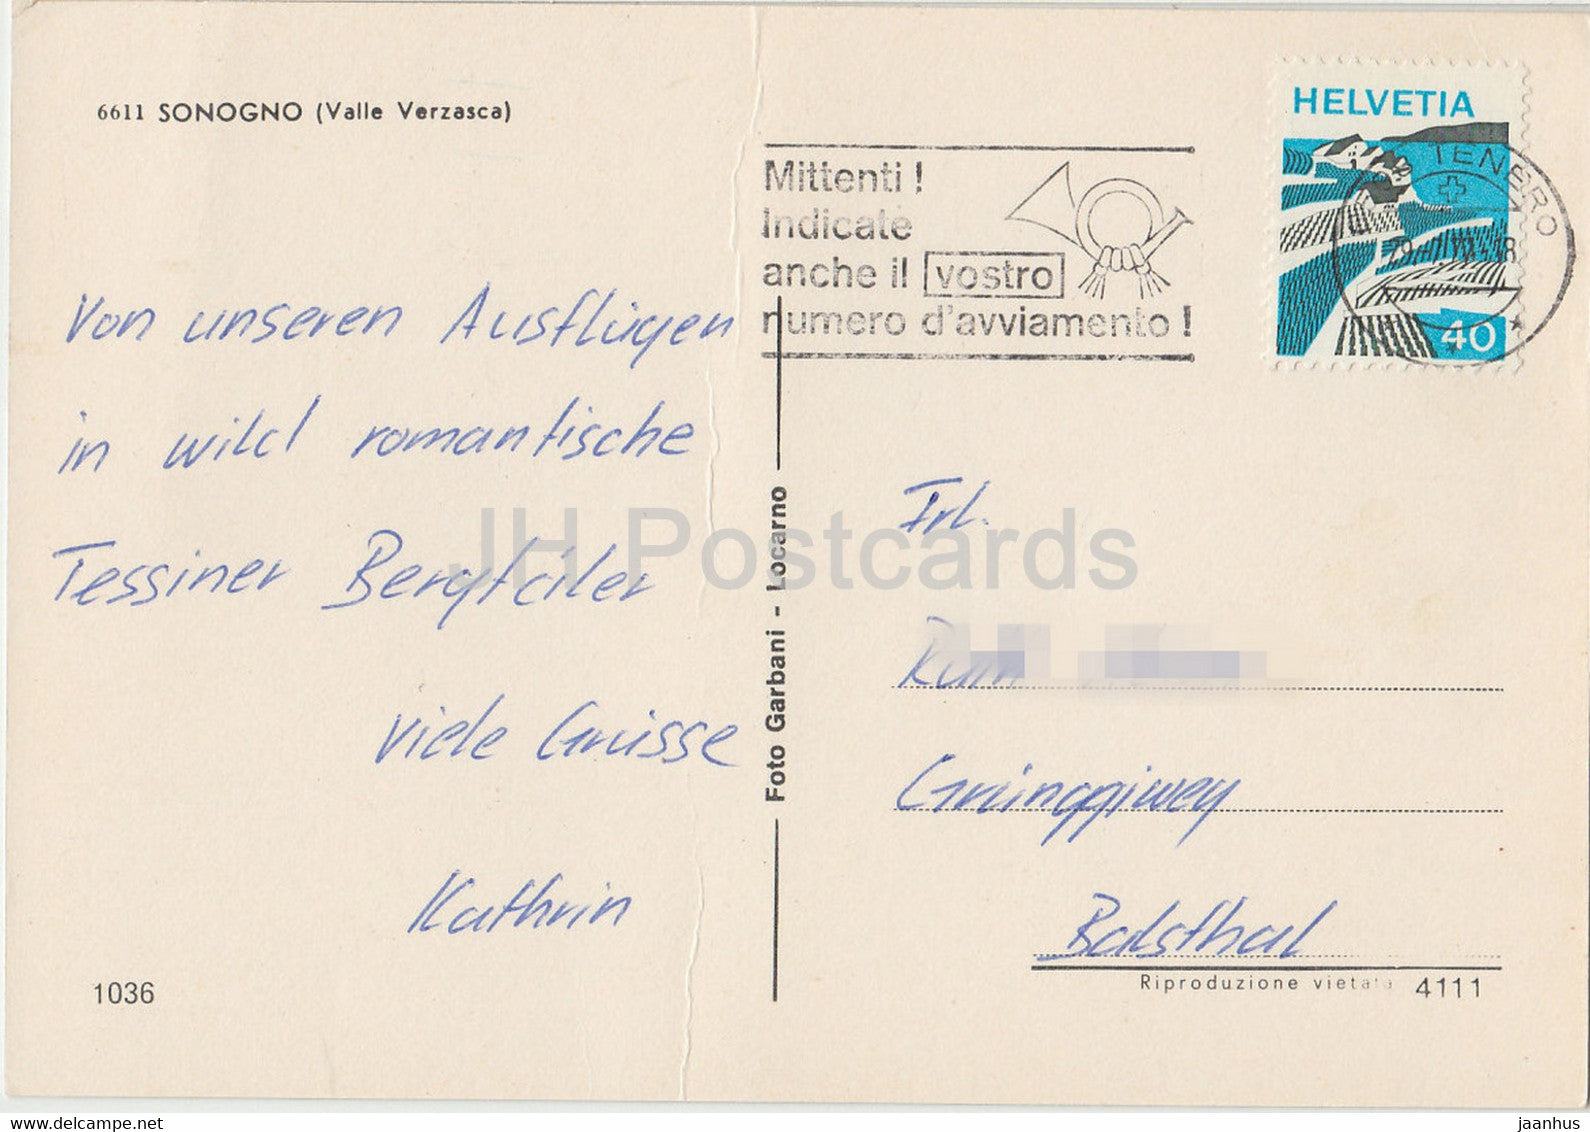 6611 SONOGNO (Valle Verzasca)
Von unseren Ausflügen
in wild romantische
Tessiner Bergtäler
viele Grüsse
Kathrin
1036
Foto Garbani - Locarno
Mittenti !
Indicate
anche il vostro
numero d'avviamento !
HELVETIA
40
TENERO
Frl.
Balsthal
Riproduzione vietata 4111
JH Postcards
www.delcampe.net
jaanhus